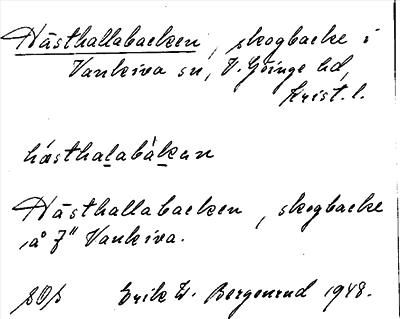 Hästhallabacken, skogbacke i
Vankiva sn, V. Göinge hd,
Krist. l.
hästhalabàkan
Hästhallabacken, skogbacke
å Vankiva.
Erik W. Bergenrud 1948.